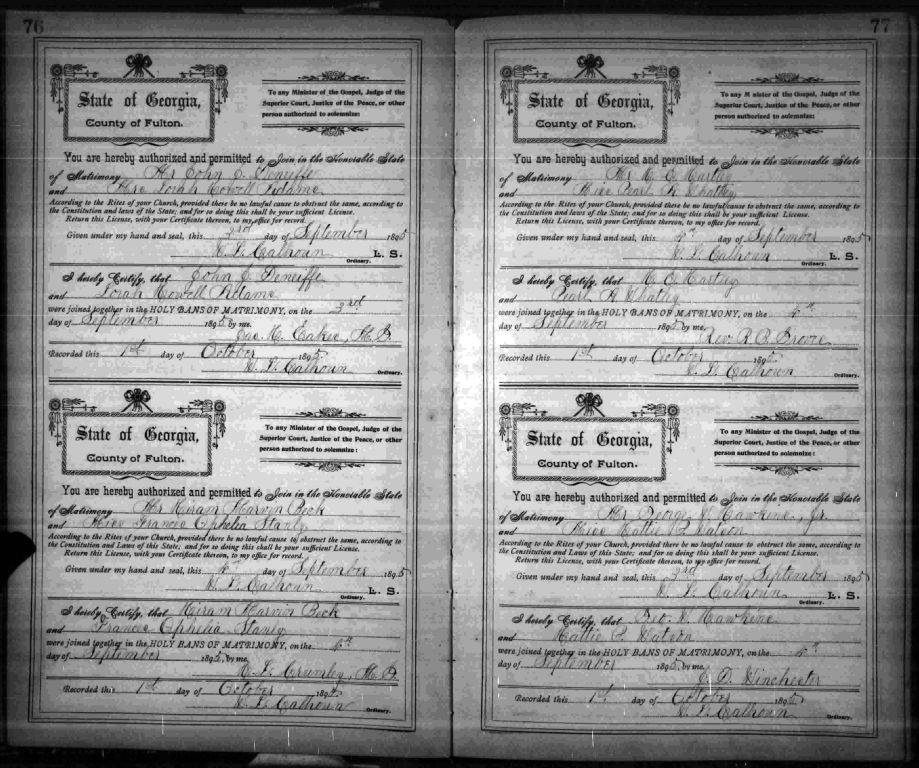 76
State of Georgia,
County of Fulton.
To any Minister of the Gospel, Judge of the
Superior Court, Justice of the Peace, or other
person authorized to solemnize:
You are hereby authorized and permitted to Join in the Honorable State
of Matrimony Mr John J.
and Lorah Howell Adams
According to the Rites of your Church, provided there be no lawful cause to obstruct the same, according to
the Constitution and laws of the State; and for so doing this shall be your sufficient License.
Return this License, with your Certificate thereon, to my office for record.
Given under my hand and seal, this 3rd day of September 1895
W. L. Calhoun L. S.
Ordinary.
I hereby Certify, that John J.
and Lorah Howell Adams
were joined together in the HOLY BANS OF MATRIMONY, on the 3rd
day of September 1895 by me.
Recorded this 1st day of October 1895
W. L. Calhoun Ordinary.
State of Georgia,
County of Fulton.
To any Minister of the Gospel, Judge of the
Superior Court, Justice of the Peace, or other
person authorized to solemnize:
You are hereby authorized and permitted to Join in the Honorable State
of Matrimony Mr Hiram Marvin Beck
and Miss Francis Ophelia Stanly
According to the Rites of your Church, provided there be no lawful cause to obstruct the same, according to
the Constitution and Laws of this State; and for so doing this shall be your sufficient License.
Return this License, with your Certificate thereon, to my office for record.
Given under my hand and seal, this 4th day of September 1895
W. L. Calhoun L. S.
Ordinary.
I hereby Certify, that Hiram Marvin Beck
and Francis Ophelia Stanly
were joined together in the HOLY BANS OF MATRIMONY, on the 4th
day of September 1895, by me.
Crumley
Recorded this 1st day of October 1895
W. L. Calhoun
Ordinary.
77
State of Georgia,
County of Fulton.
To any Minister of the Gospel, Judge of the
Superior Court, Justice of the Peace, or other
person authorized to solemnize:
You are hereby authorized and permitted to Join in the Honorable State
of Matrimony Mr
and Miss Pearl R Whatley
According to the Rites of your Church, provided there be no lawful cause to obstruct the same, according to
the Constitution and laws of the State; and for so doing this shall be your sufficient License.
Return this License, with your Certificate thereon, to my office for record.
Given under my hand and seal, this 4th day of September 1895
W. L. Calhoun L. S.
Ordinary.
I hereby Certify, that
and Pearl R Whatley
were joined together in the HOLY BANS OF MATRIMONY, on the 4th
day of September 1895 by me.
Rev.
Recorded this 1st day of October 1895
W. L. Calhoun
Ordinary.
State of Georgia,
County of Fulton.
To any Minister of the Gospel, Judge of the
Superior Court, Justice of the Peace, or other
person authorized to solemnize:
You are hereby authorized and permitted to Join in the Honorable State
of Matrimony Mr George W. Hawkins Jr.
and Miss Mattie P. Watson
According to the Rites of your Church, provided there be no lawful cause to obstruct the same, according to
the Constitution and Laws of this State; and for so doing this shall be your sufficient License.
Return this License, with your Certificate thereon, to my office for record.
Given under my hand and seal, this 3rd day of September 1895
W. L. Calhoun L. S.
Ordinary.
I hereby Certify, that Geo. W. Hawkins
and Mattie P. Watson
were joined together in the HOLY BANS OF MATRIMONY, on the 4th
day of September 1895 by me.
J. D. Winchester
Recorded this 1st day of October 1895
W. L. Calhoun
Ordinary.